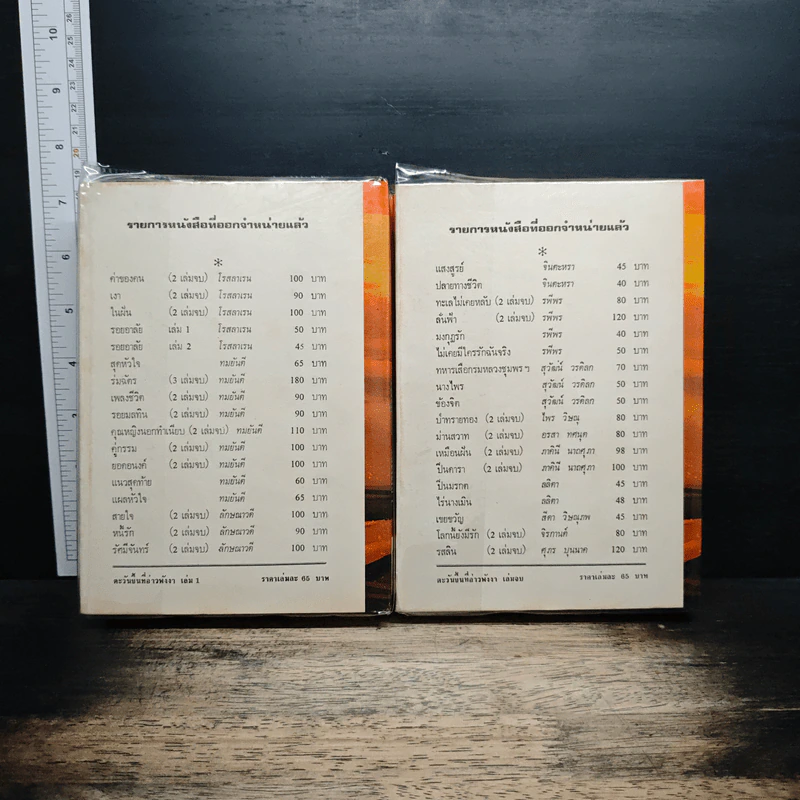 รายการหนังสือที่ออกจำหน่ายแล้ว
*
ค่าของคน (2 เล่มจบ) โรสลาเรน 100 บาท
เงา (2 เล่มจบ) โรสลาเรน 90 บาท
ในฝัน (2 เล่มจบ) โรสลาเรน 100 บาท
รอยอาลัย เล่ม 1 โรสลาเรน 50 บาท
รอยอาลัย เล่ม 2 โรสลาเรน 45 บาท
สุดหัวใจ ทมยันตี 65 บาท
ร่มฉัตร (3 เล่มจบ) ทมยันตี 180 บาท
เพลงชีวิต (2 เล่มจบ) ทมยันตี 90 บาท
รอยมลทิน (2 เล่มจบ) ทมยันตี 90 บาท
คุณหญิงนอกทำเนียบ (2 เล่มจบ) ทมยันตี 110 บาท
คู่กรรม (2 เล่มจบ) ทมยันตี 100 บาท
ยอดอนงค์ (2 เล่มจบ) ทมยันตี 100 บาท
แนวสุดท้าย ทมยันตี 60 บาท
แผลหัวใจ ทมยันตี 65 บาท
สายใจ (2 เล่มจบ) ลักษณาวดี 100 บาท
หนี้รัก (2 เล่มจบ) ลักษณาวดี 90 บาท
รัศมีจันทร์ (2 เล่มจบ) ลักษณาวดี 100 บาท
ตะวันขึ้นที่อ่าวพังงา เล่ม 1 ราคาเล่มละ 65 บาท
รายการหนังสือที่ออกจำหน่ายแล้ว
*
แสงสูรย์ จินตะหรา 45 บาท
ปลายทางชีวิต จินตะหรา 40 บาท
ทะเลไม่เคยหลับ (2 เล่มจบ) รพีพร 80 บาท
ลั่นฟ้า (2 เล่มจบ) รพีพร 120 บาท
มงกุฎรัก รพีพร 40 บาท
ไม่เคยมีใครรักฉันจริง รพีพร 50 บาท
ทหารเสือกรมหลวงชุมพรฯ สุวัฒน์ วรดิลก 70 บาท
นางไพร สุวัฒน์ วรดิลก 50 บาท
ข้องจิต สุวัฒน์ วรดิลก 50 บาท
บำทรายทอง (2 เล่มจบ) ไพร วิษณุ 80 บาท
ม่านสวาท (2 เล่มจบ) อรสา ทศนุต 80 บาท
เหมือนฝัน (2 เล่มจบ) ภาคินี นาถศุภา 98 บาท
ปิ่นดารา (2 เล่มจบ) ภาคินี นาถศุภา 100 บาท
ปิ่นมรกต ลลิตา 45 บาท
ไร่นางเมิน ลลิตา 48 บาท
เขยขวัญ สีดา วิษณุภพ 45 บาท
โลกนี้ยังมีรัก (2 เล่มจบ) จิรกานต์ 80 บาท
รสลิน (2 เล่มจบ) ศุภร บุนนาค 120 บาท
ตะวันขึ้นที่อ่าวพังงา เล่มจบ ราคาเล่มละ 65 บาท